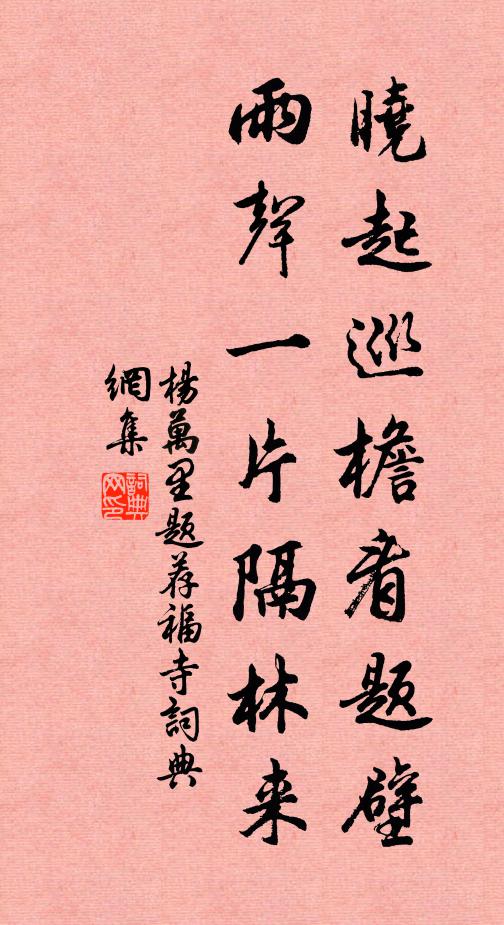 曉起巡檐看題壁
雨聲一片隔林来
楊萬里題荐福寺詞典
網集
詞典
网印